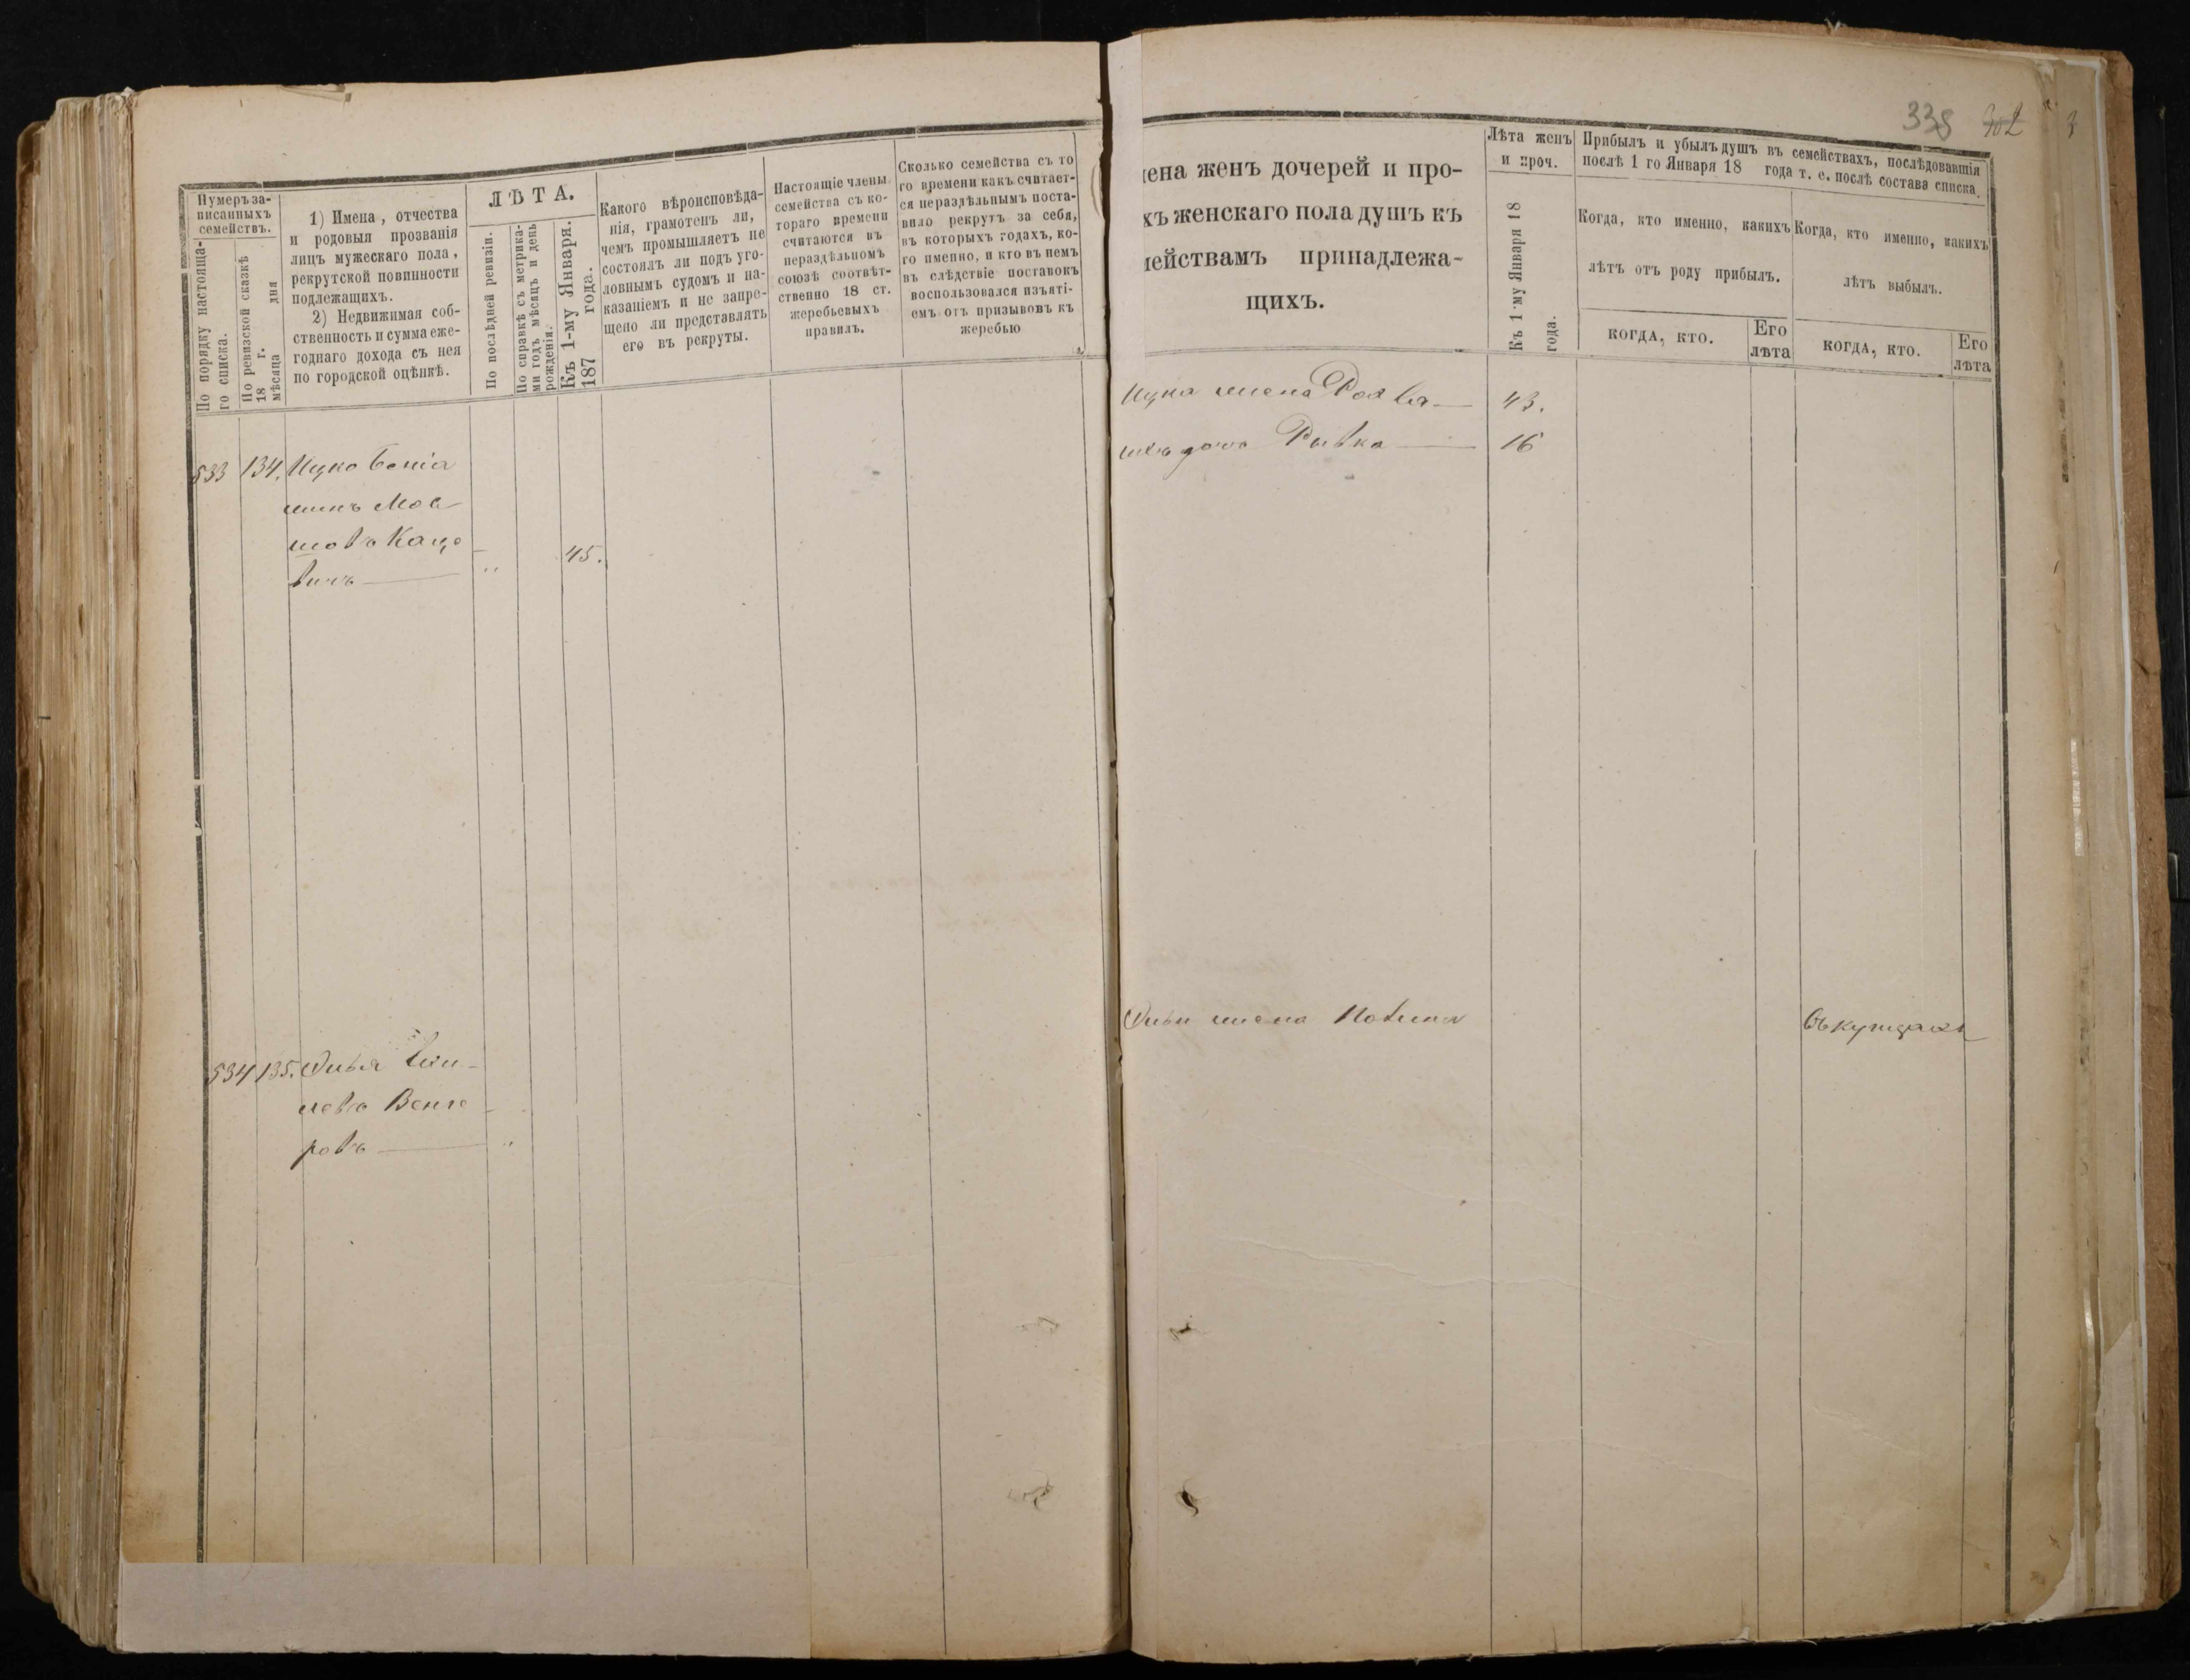 338 302
Нумеръ за-
писанныхъ
семействъ.
По порядку настояща-
го списка.
По ревизской сказкѣ
18 г. дня
мѣсяца
1) Имена, отчества
и родовыя прозванія
лицъ мужескаго пола,
рекрутской повинности
подлежащихъ.
2) Недвижимая соб-
ственность и сумма еже-
годнаго дохода съ нея
по городской оцѣнкѣ.
ЛѢТА.
По послѣдней ревизіи.
По справкѣ съ метрика-
ми годъ мѣсяцъ и день
рожденія.
Къ 1-му Января.
187 года.
Какого вѣроисповѣда-
нія, грамотенъ ли,
чемъ промышляетъ не
состоялъ ли подъ уго-
ловнымъ судомъ и на-
казаніемъ и не запре-
щено ли представлять
его въ рекруты.
Настоящіе члены
семейства съ ко-
тораго времени
считаются въ
нераздѣльномъ
союзѣ соотвѣт-
ственно 18 ст.
жеребьевыхъ
правилъ.
Сколько семейства съ то
го времени какъ считает-
ся нераздѣльнымъ поста-
вило рекрутъ за себя,
въ которыхъ годахъ, ко-
го именно, и кто въ немъ
въ слѣдствіе поставокъ
воспользовался изъяті-
емъ отъ призывовъ къ
жеребью
533 134. Ицко Беніа
минъ Мов
шовъ Каце
вичъ — „ 45.
534 135.
левъ Венге
ровъ — „
ена женъ дочерей и про-
хъ женскаго пола душъ къ
ействамъ принадлежа-
щихъ.
Лѣта женъ
и проч.
Къ 1-му Января 18
года.
Прибылъ и убылъ душъ въ семействахъ, послѣдовавшія
послѣ 1 го Января 18 года т. е. послѣ состава списка.
Когда, кто именно, какихъ
лѣтъ отъ роду прибылъ.
КОГДА, КТО.
Его
лѣта
Когда, кто именно, какихъ
лѣтъ выбылъ.
КОГДА, КТО.
Его
лѣта
Ицка жена — 43.
ихъ дочь Ривка — 16
жена